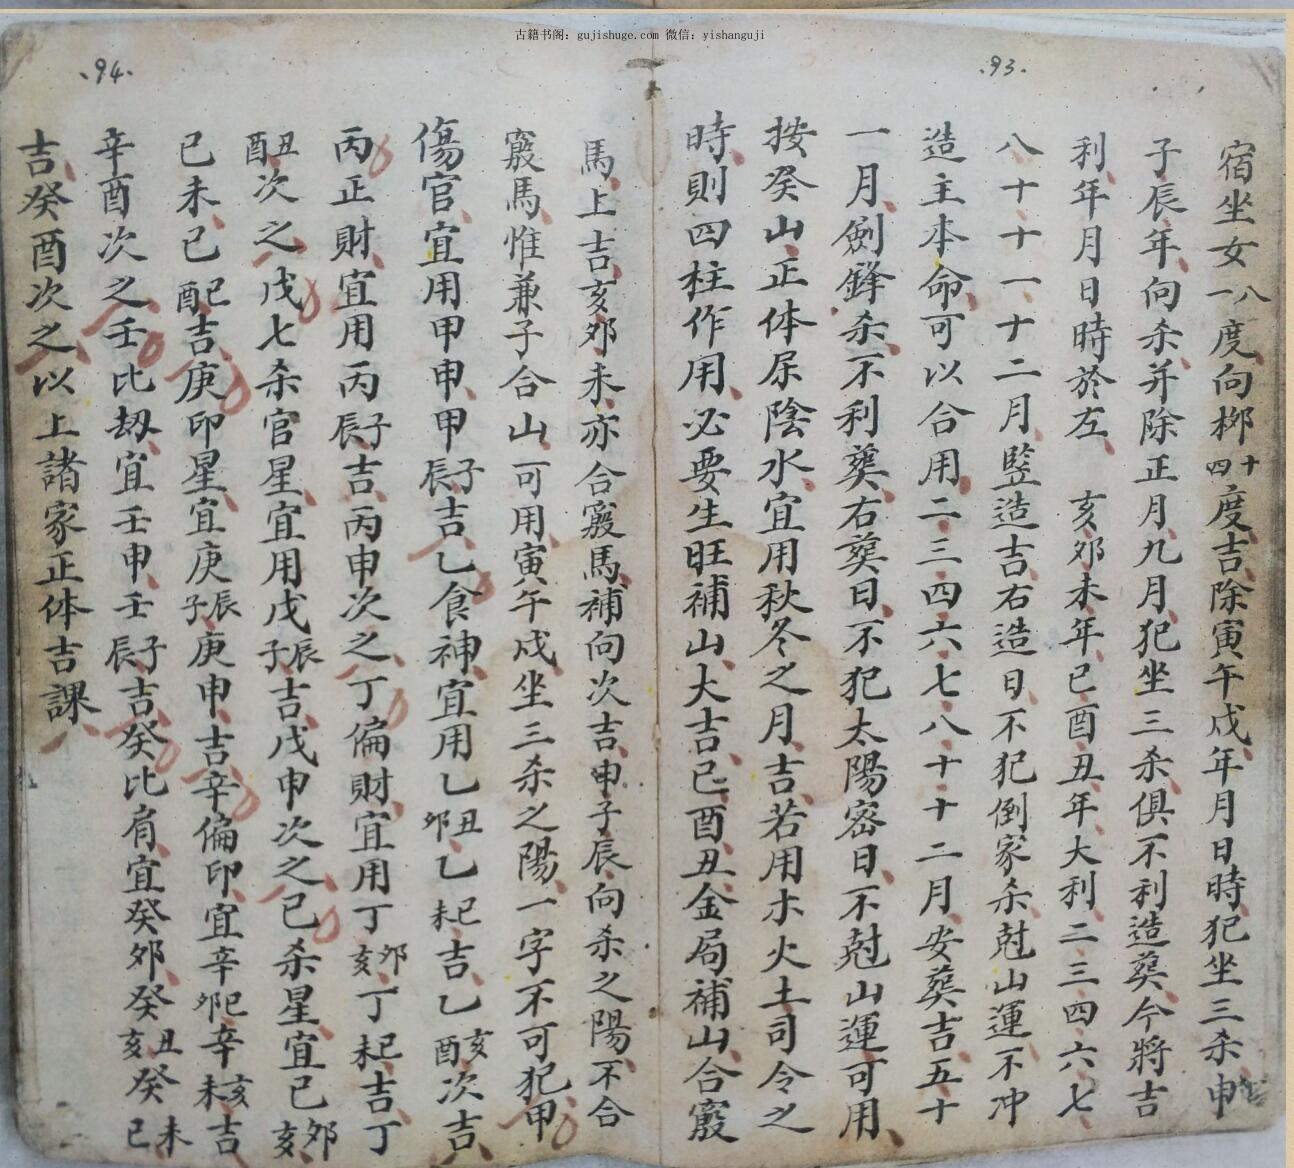 古籍书阁：gujishuge.com 微信：yishanguji
.93.
宿坐女一八度向柳四十度吉除寅午戌年月日時犯坐三杀申
子辰年向杀并除正月九月犯坐三杀俱不利造葬今將吉
利年月日時於左 亥夘未年巳酉丑年大利二三四六七
八十十一十二月竪造吉右造日不犯倒家杀尅山運不冲
造主本命可以合用二三四六七八十十二月安葬吉五十
一月劍鋒杀不利葬右葬日不犯太陽密日不尅山運可用
按癸山正体屬陰水宜用秋冬之月吉若用木火土司令之
時則四柱作用必要生旺補山大吉巳酉丑金局補山合竅
馬上吉亥夘未亦合竅馬補向次吉申子辰向杀之陽不合
竅馬惟兼子合山可用寅午戍坐三杀之陽一字不可犯甲
傷官宜用甲申甲子辰吉乙食神宜用乙丑夘乙巳未吉乙亥酉次吉
丙正財宜用丙子辰吉丙申次之丁偏財宜用丁夘亥丁巳未吉丁
丑酉次之戊七杀官星宜用戊辰子吉戊申次之己杀星宜己夘亥
己未己巳酉吉庚印星宜庚辰子庚申吉辛偏印宜辛巳夘辛亥未吉
辛酉次之壬比刼宜壬申壬子辰吉癸比肩宜癸夘癸丑亥癸未巳
吉癸酉次之以上諸家正体吉課
.94.